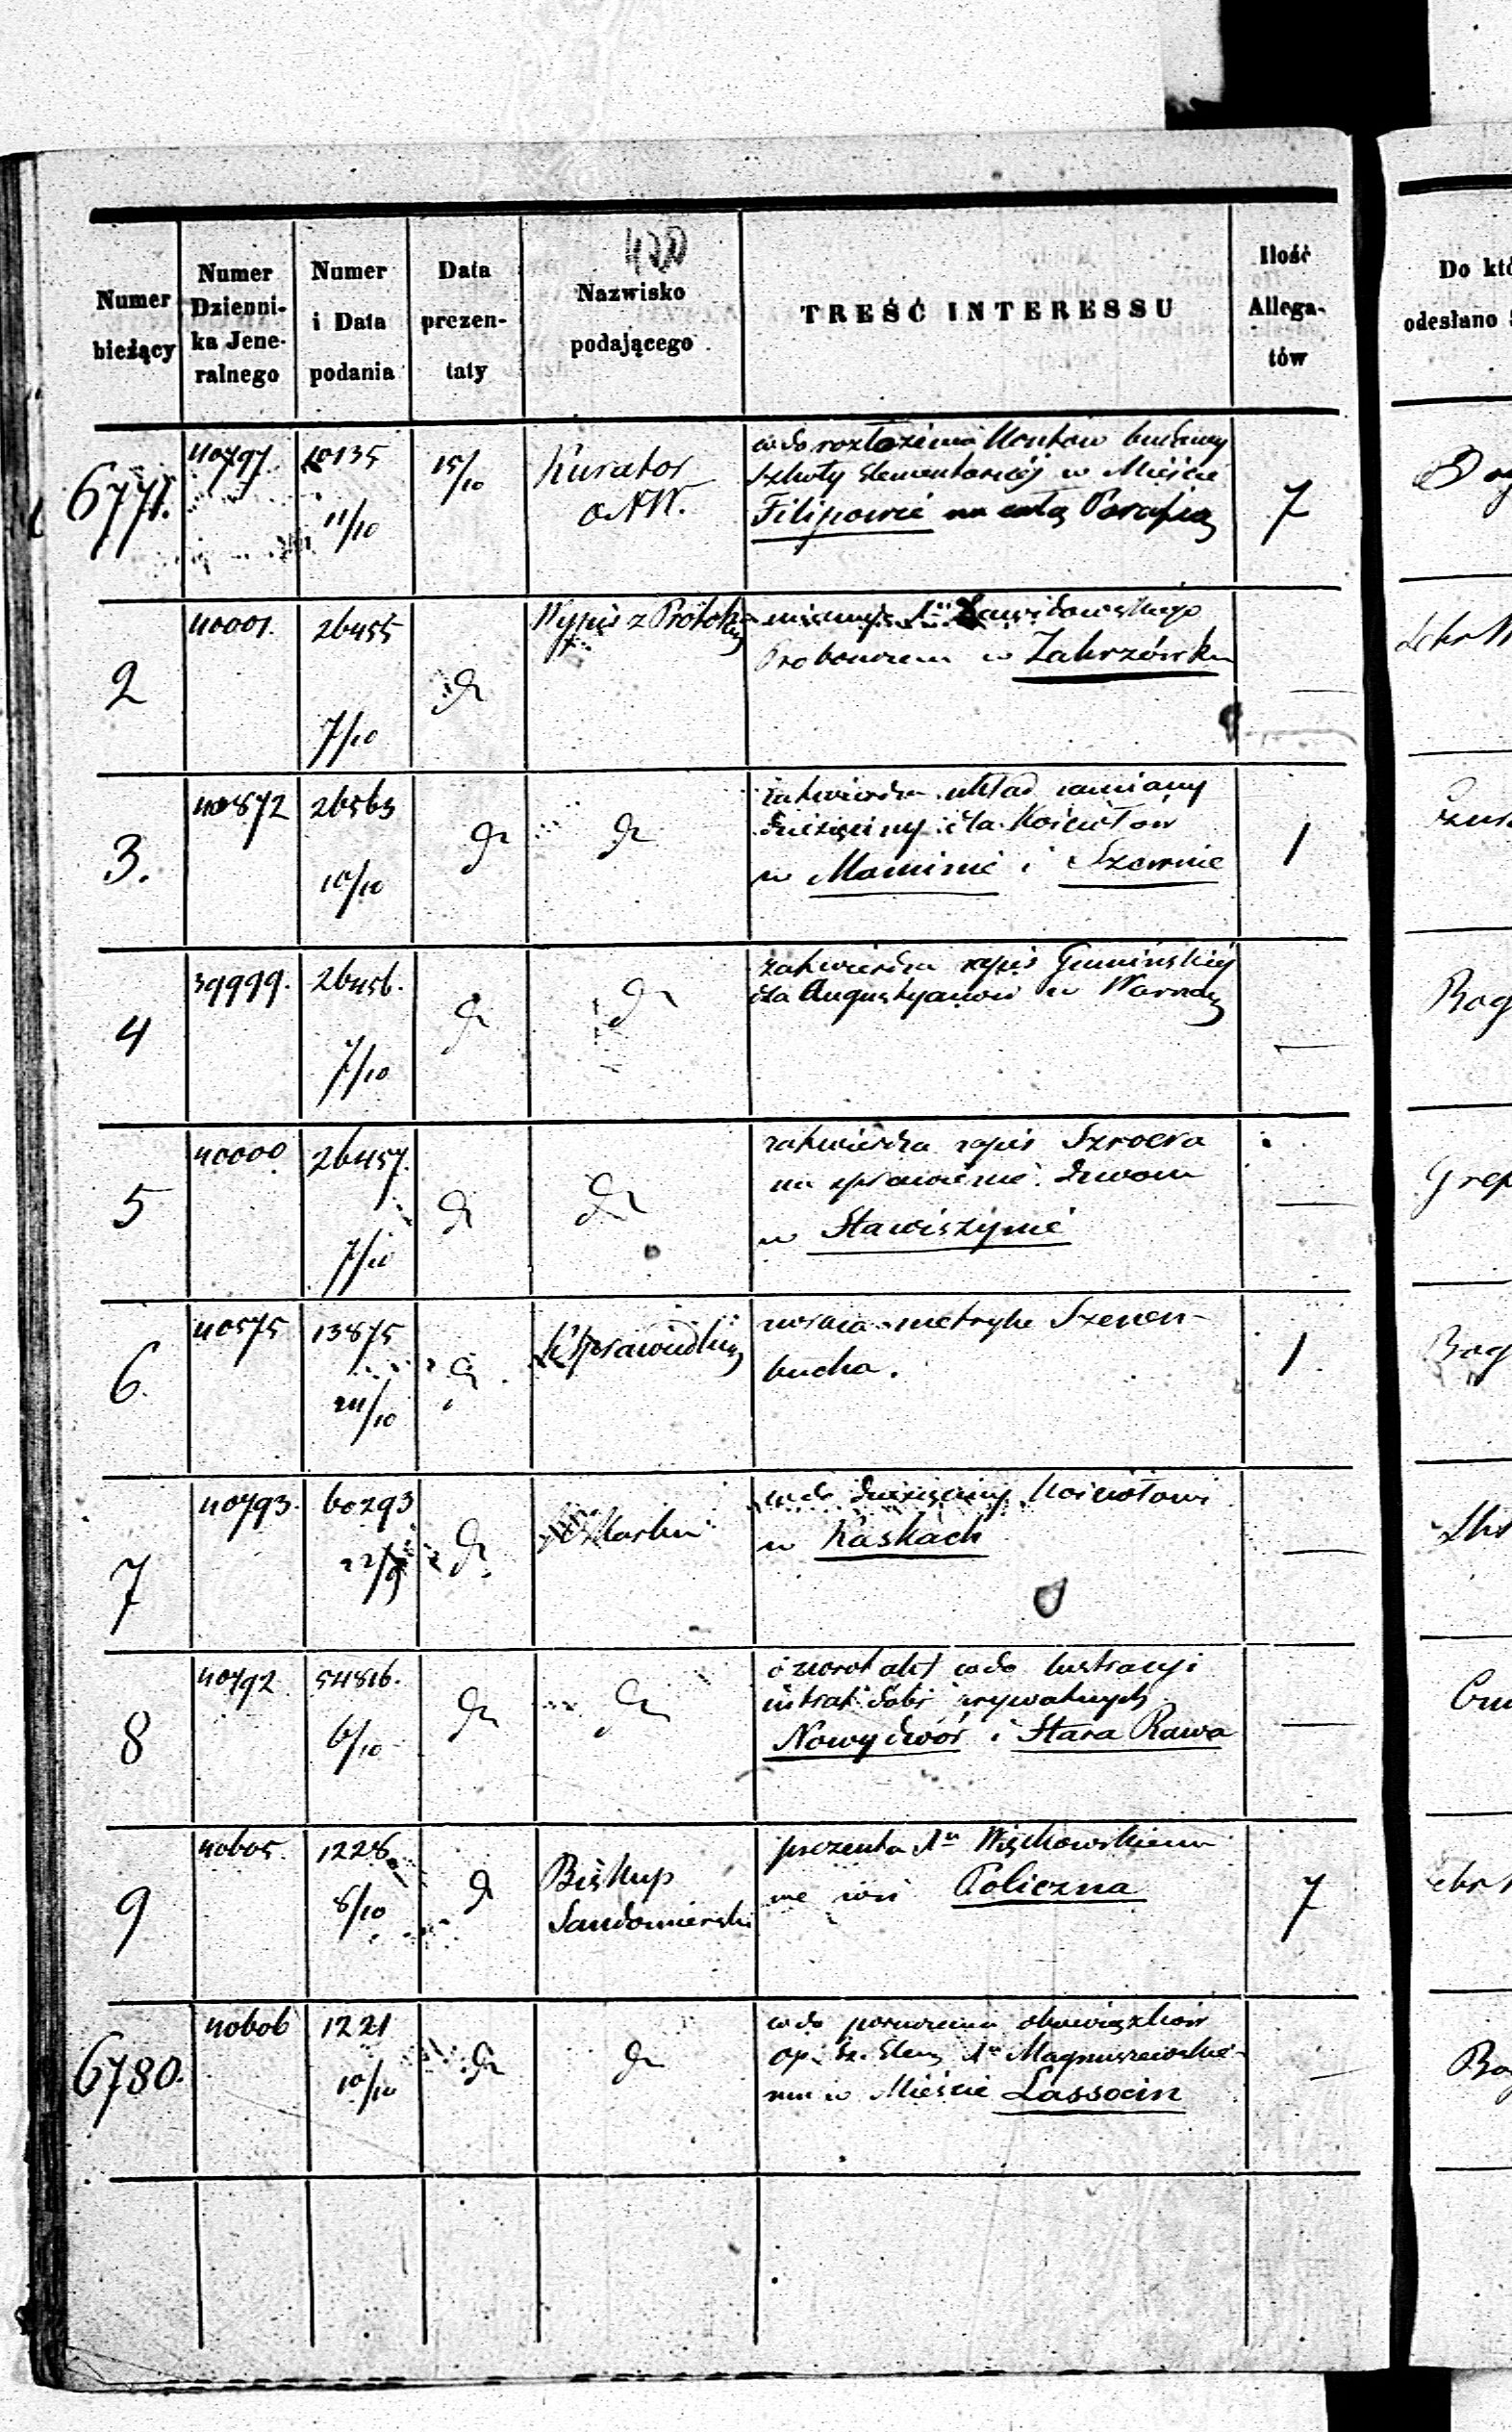 420
Numer bieżący
Numer Dzienni- ka Jene- ralnego
Numer i Data podania
Data prezen- taty
Nazwisko podającego
TREŚĆ INTERESSU
Ilość Allega- tów
Do któ
odesłano
6771. 40797 10135 11/10 15/10 Kurator ONW.
codo rozłożenia kosztów budowy
szkoły Elementarnéj w Mieście
Filipowie na całą Parafią 7
2 40001. 26455 7/10 dº Wypis z Protok
Proboszczem w Zakrzówku —
3. 40872 26563 10/10 dº dº
zatwierdza układ zamiany
dziesięciny dla Kościołów
w Maminie i Szwernie 1
4 39999. 26456. 7/10 dº dº
zatwierdza zapis Gumińskiéj
dla Augustyanów w Warsza —
5 40000 26457. 7/10 dº dº
zatwierdza zapis
na sprawienie dzwonu
w Stawiszynie —
6. 40575 13875 dº Sprawiedliw
metrykę Szenen-
bucha. 1
7 40793. 60293 22/9 dº Skarbu
codo dziesięciny kościołowi
w Kaskach —
8 40792 54816. 6/10 dº dº
o zwrot akt codo lustracyi
intrat dóbr prywatnych
Nowydwór i Stara Rawa —
9 40605. 1228 8/10 dº Biskup
Sandomierski
prezenta Xu Więckowskiemu
we wsi Policzna 7
6780. 40606 1221 10/10 dº dº
codo poruczenia obowiązków
Op. Sz. Elem Xu Magnuszewskie-
mu w Mieście Lassocin —